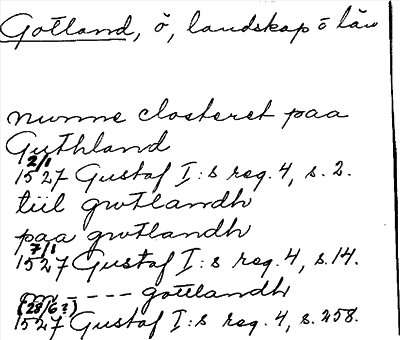 Gotland, ö, landskap o län
nunne closteret paa
Guthland
2/1
1527 Gustaf I:s reg. 4, s. 2.
tiil gwtlandh
paa gwtlandh
7/1
1527 Gustaf I:s reg. 4, s. 14.
---- gottlandh
(28/6?)
1527 Gustaf I:s reg. 4, s. 258.